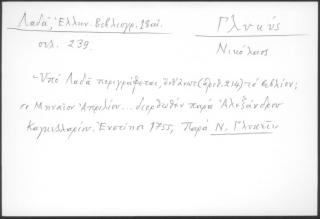 Λαδᾶ, Ἑλλην. Βιβλιογρ. 18 αἰ.
Γλυκύς
σελ. 239.
Νικόλαος
Ὑπὸ Λαδᾶ περιγράφεται, (ἀριθ. 214) τὸ βιβλίον:
Μηναῖον Ἀπριλίου... διορθωθὲν παρὰ Ἀλεξάνδρου
Καγκελλαρίου. Ἐνετίησι 1755, Παρὰ Ν. Γλυκεῖ